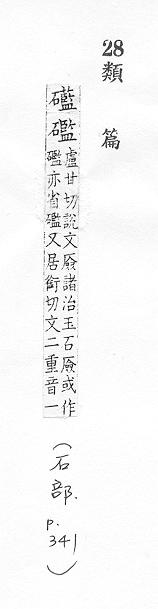 28
類篇
礛䃫
盧甘切說文厱諸治玉石厱或作
礛亦省礛又居銜切文二重音一
(石部.
p.
341)